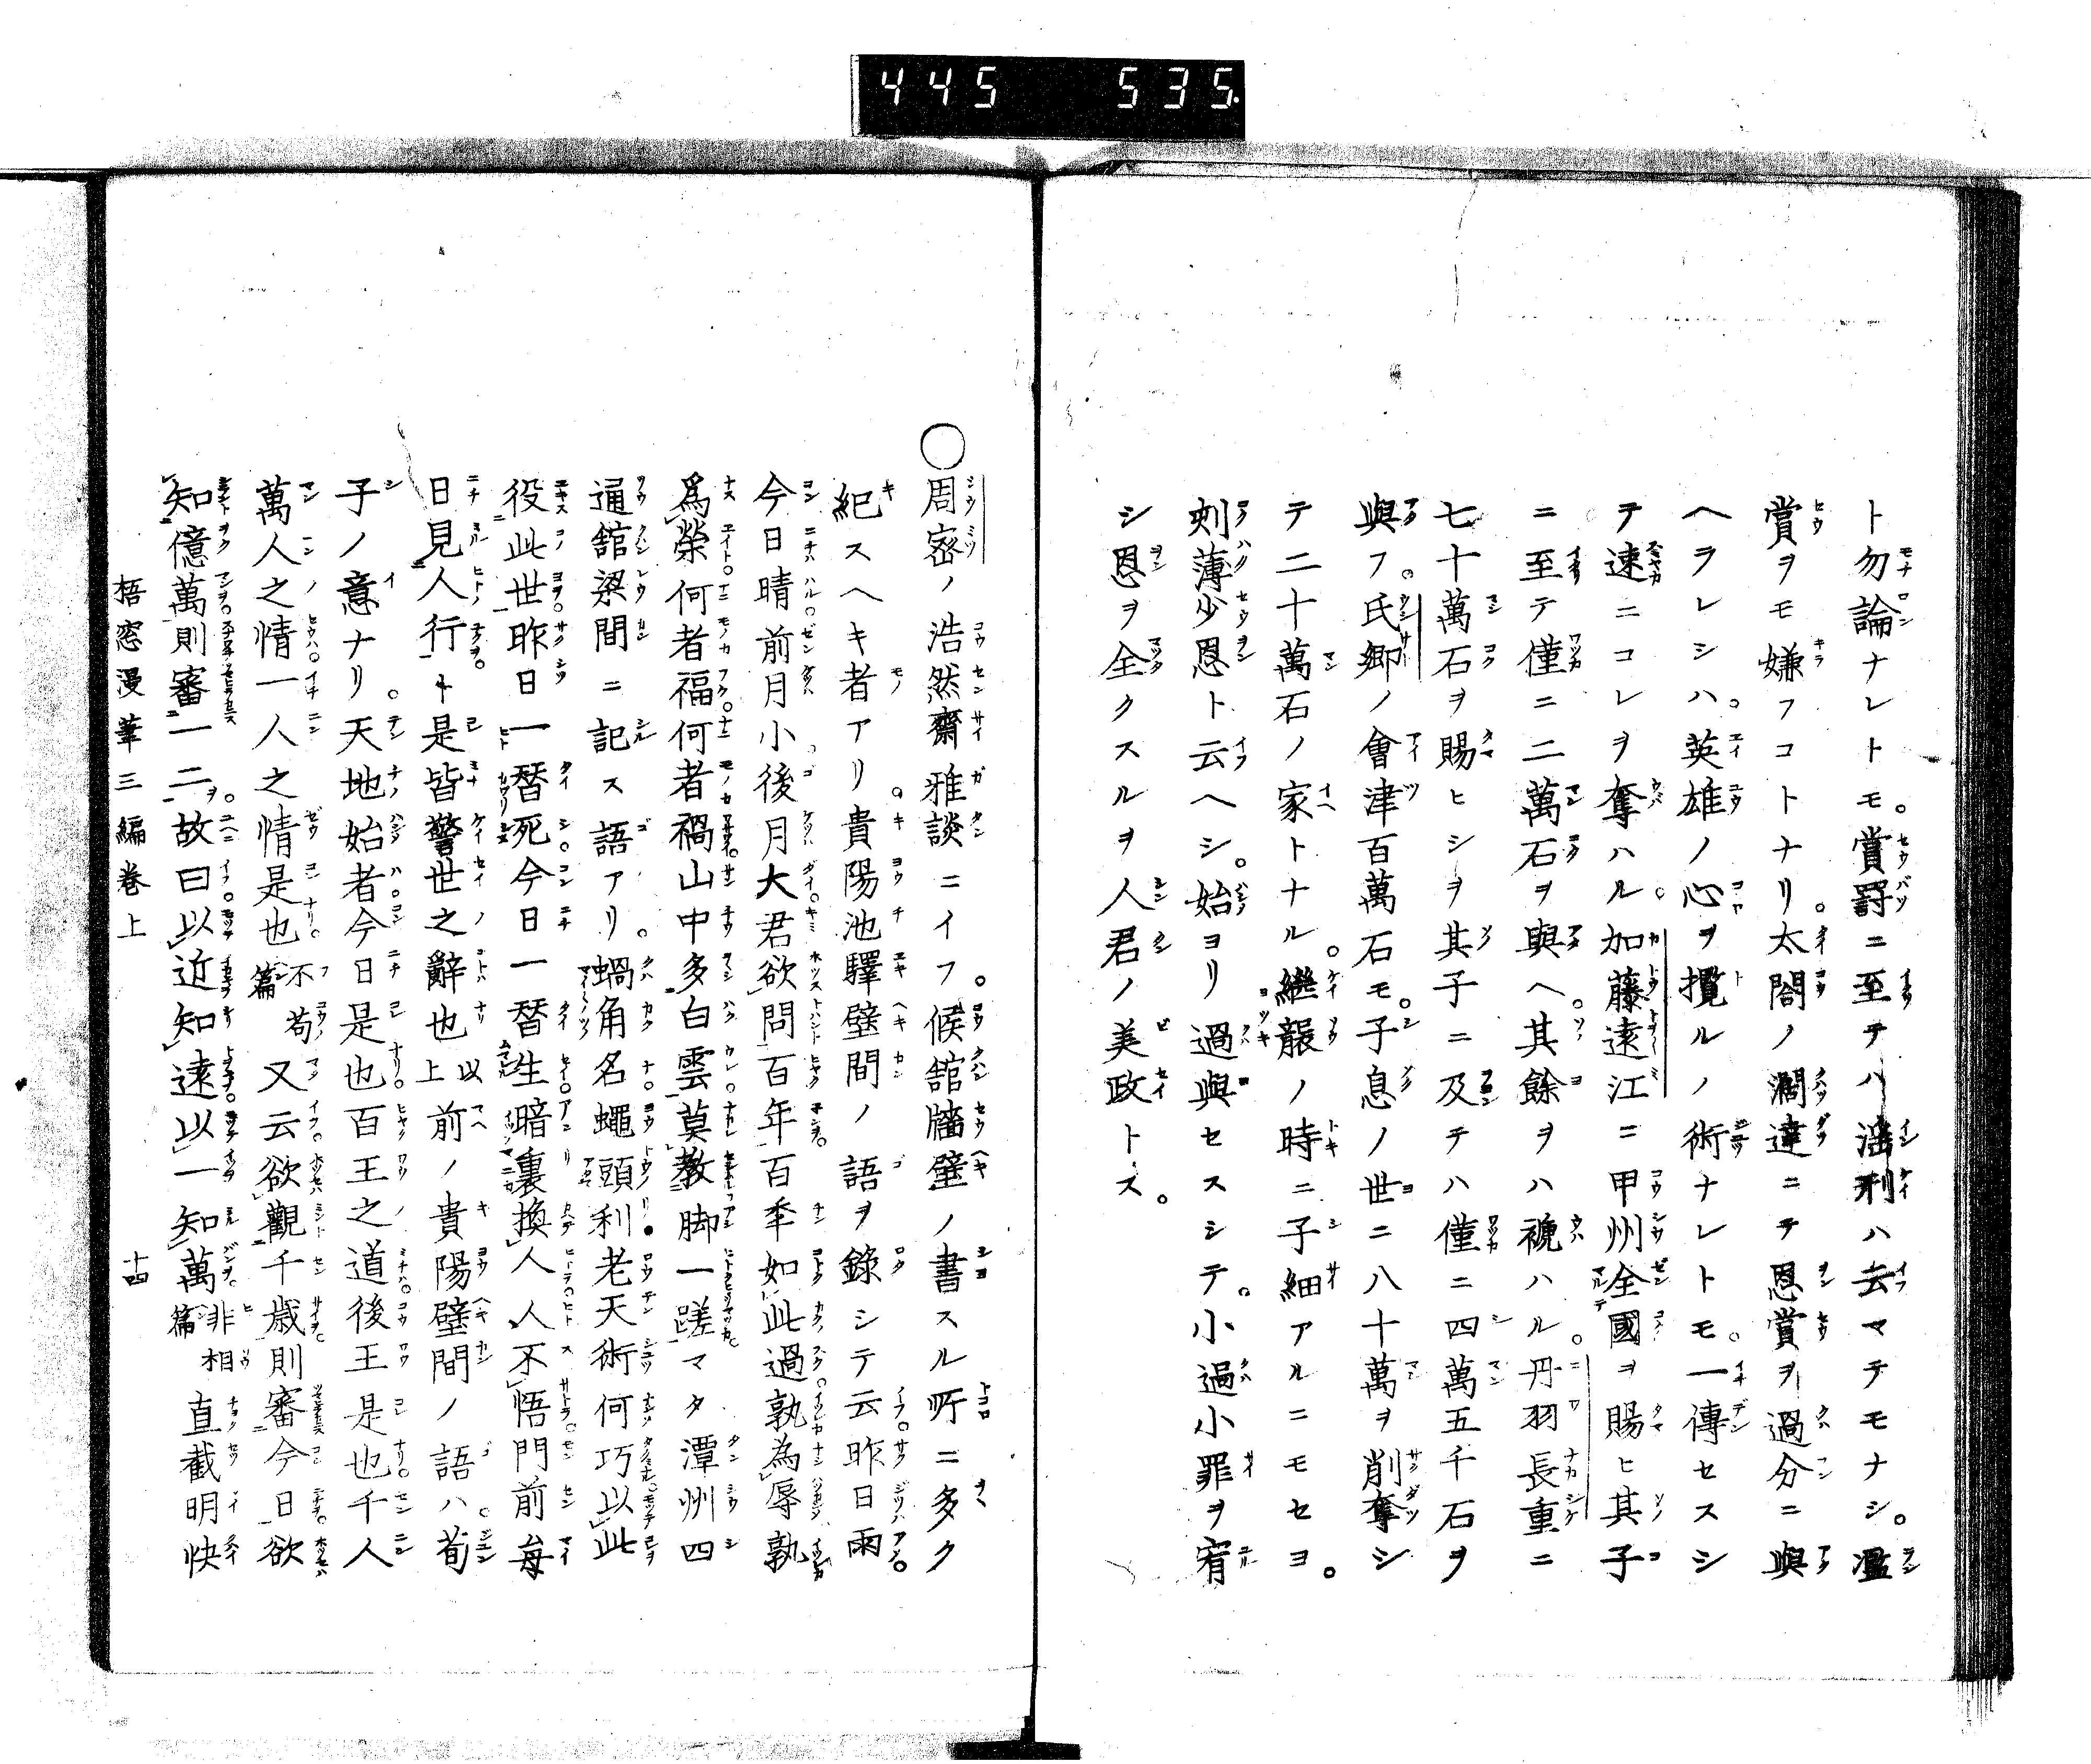 445 535.
ト勿論ナレトモ。賞罰ニ至テハ淫刑ハ云マテモナシ。濫
賞ヲモ嫌フコトナリ。太閤ノ濶達ニテ恩賞ヲ過分ニ與
ヘラレシハ。英雄ノ心ヲ攬ルノ術ナレトモ。一傳セスシ
テ速ニコレヲ奪ハル。加藤遠江ニ甲州全國ヲ賜ヒ其子
ニ至テ僅ニ二萬石ヲ與ヘ。其餘ヲハ褫ハル。丹羽長重ニ
七十萬石ヲ賜ヒシヲ其子ニ及テハ僅ニ四萬五千石ヲ
與フ。氏郷ノ會津百萬石モ。子息ノ世ニ八十萬ヲ削奪シ
テ二十萬石ノ家トナル。繼襲ノ時ニ子細アルニモセヨ。
刺薄少恩ト云ヘシ。始ヨリ過與セスシテ。小過小罪ヲ宥
シ恩ヲ全クスルヲ人君ノ美政トス。
○周密ノ浩然齋雅談ニイフ。候舘牆壁ノ書スル所ニ多ク
紀スヘキ者アリ。貴陽池驛壁間ノ語ヲ錄シテ云昨日雨
今日晴前月小後月大君欲問百年百秊如此過孰為辱孰
爲榮何者福何者禍山中多白雲莫教脚一蹉マタ潭州四
通舘梁間ニ記ス語アリ。蝸角名蠅頭利老天術何巧以此
役此世昨日一替死今日一替生暗裏換人人不悟門前每
日見人行ト是皆警世之辭也以上前ノ貴陽壁間ノ語ハ。荀
子ノ意ナリ。天地始者今日是也百王之道後王是也千人
萬人之情一人之情是也不苟篇又云欲觀千歳則審今日欲
知億萬則審一二。故曰以近知遠以一知萬非相篇直截明快
梧窓漫筆三編卷上 十四